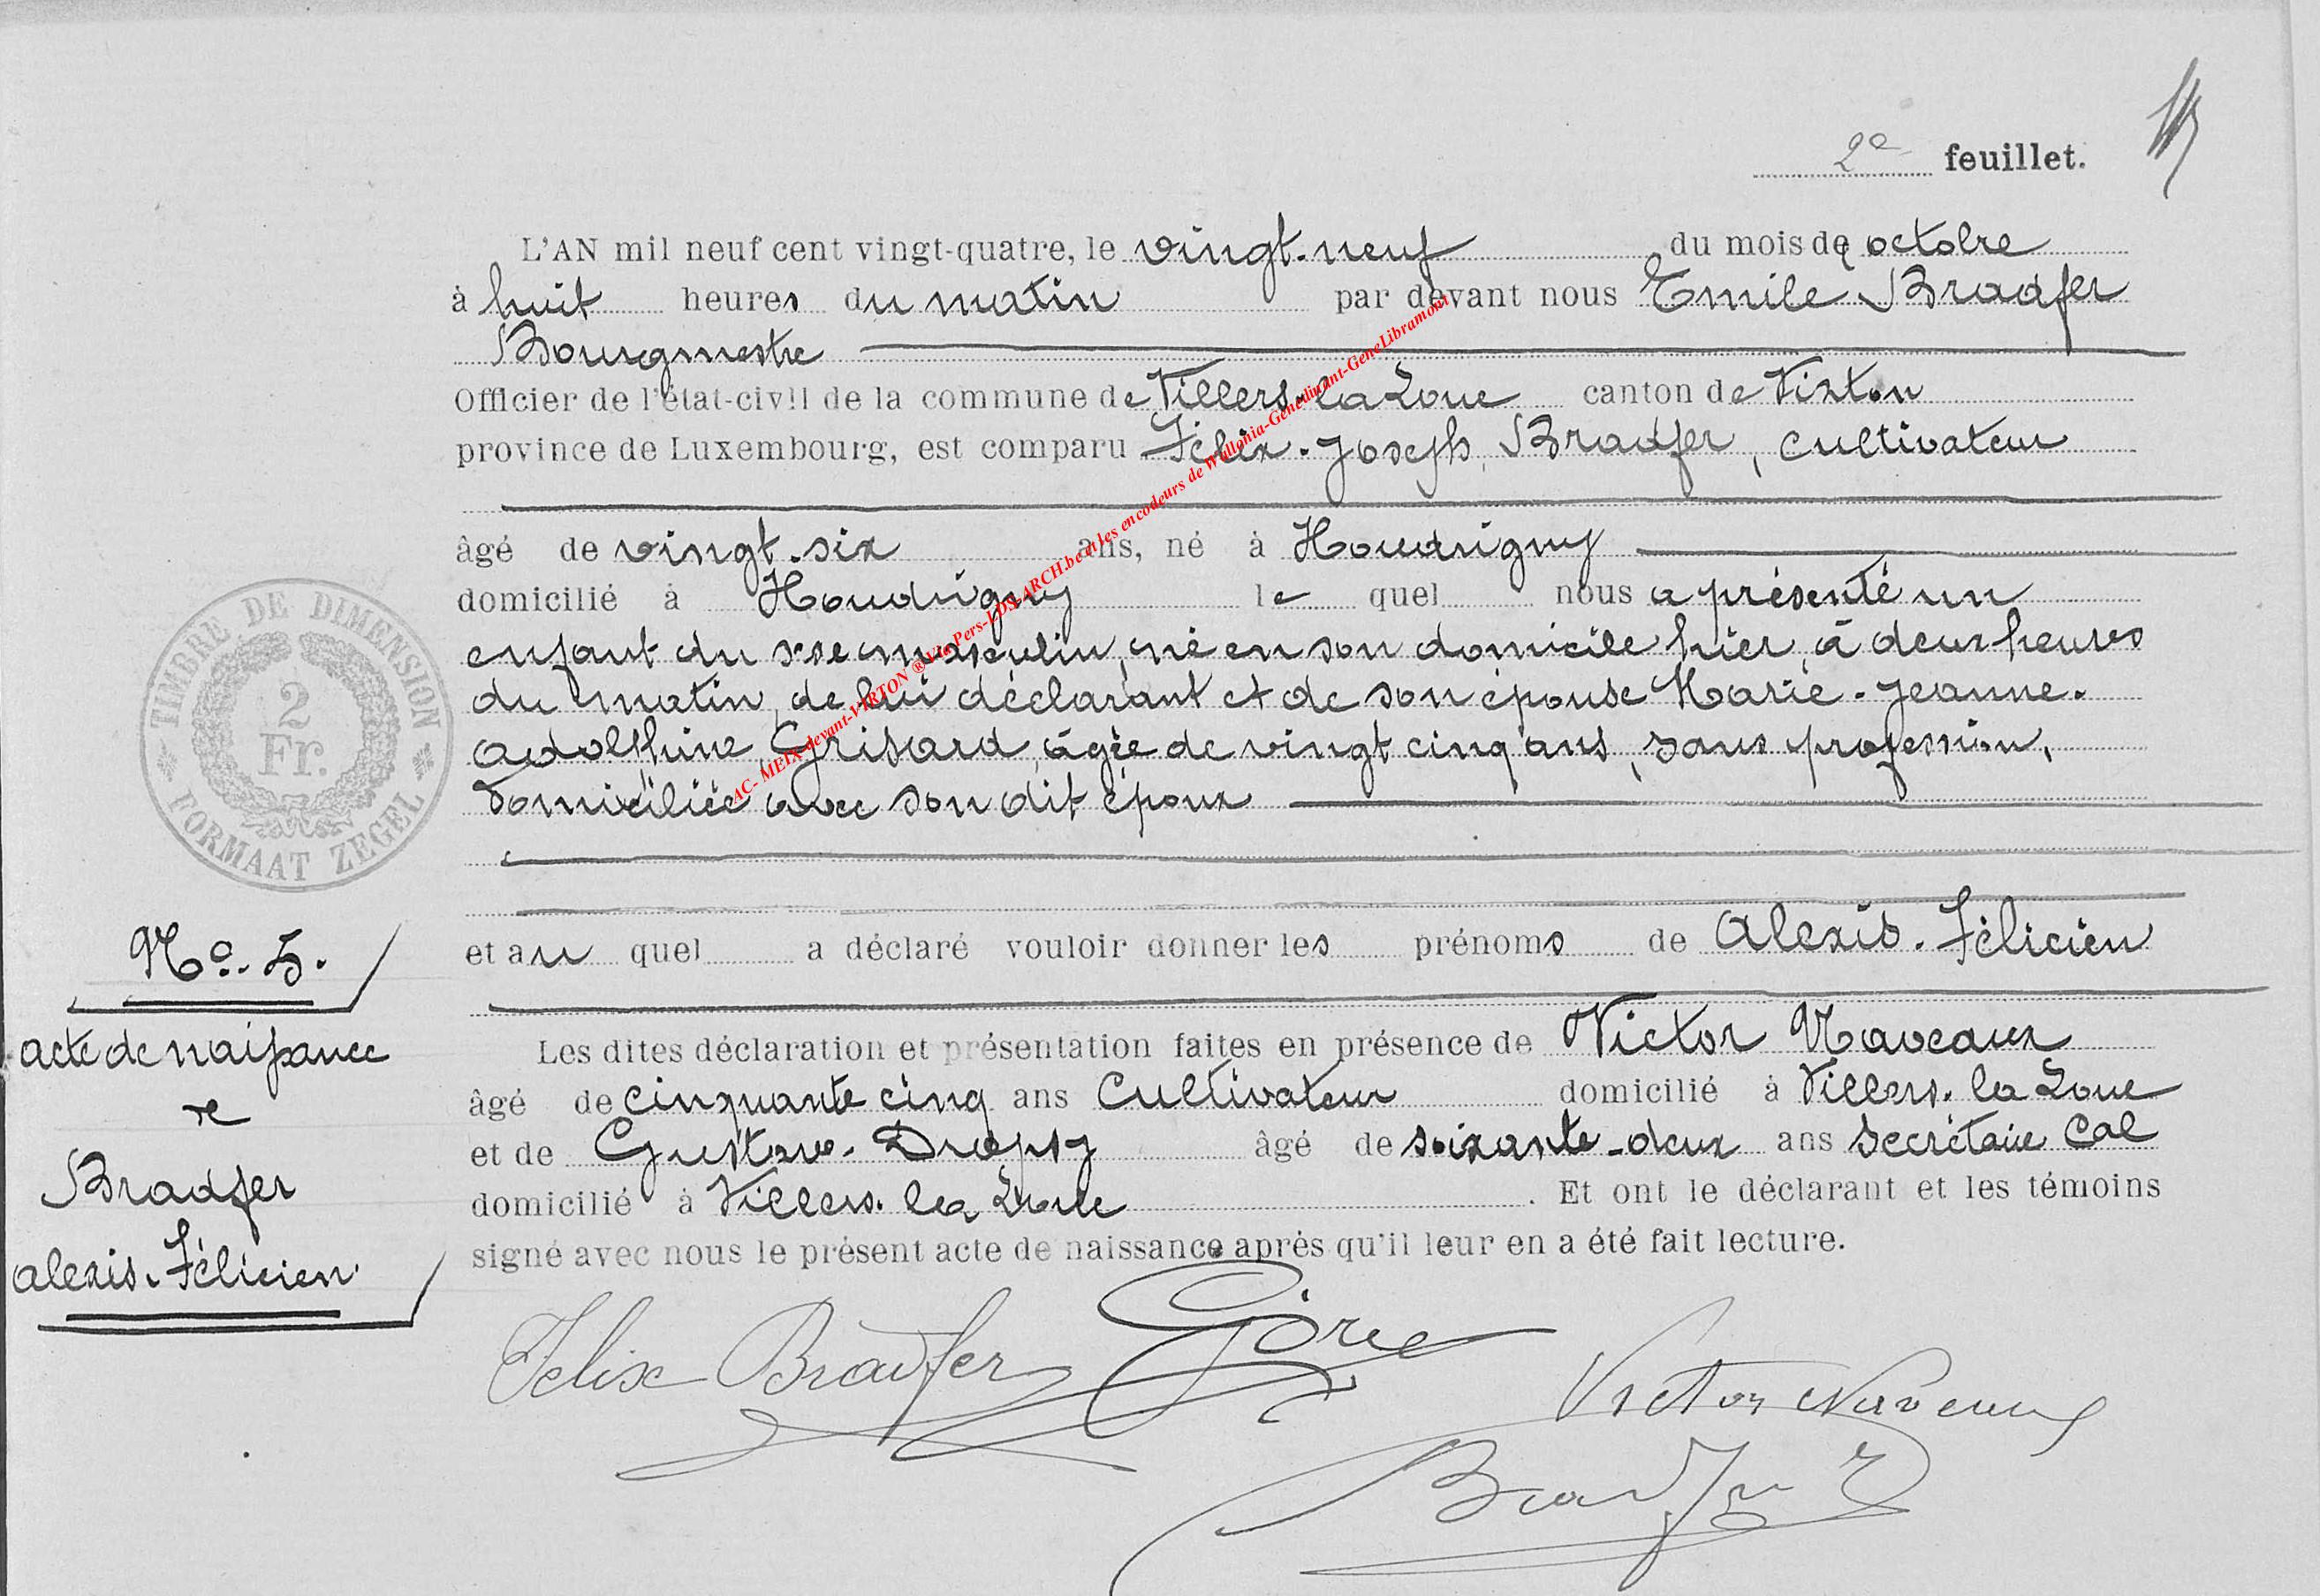 2e feuillet.
L'AN mil neuf cent vingt-quatre, le vingt-neuf du mois de octobre
à huit heures du matin par devant nous Emile Bradfer
Bourgmestre
Officier de l'état-civil de la commune de Villers-la-Loue canton de Virton
province de Luxembourg, est comparu Félix-Joseph Bradfer, cultivateur
âgé de vingt-six ans, né à Houdrigny
domicilié à Houdrigny le quel nous a présenté un
enfant du sexe masculin, né en son domicile hier, à deux heures
du matin, de lui déclarant et de son épouse Marie-Jeanne-
Adolphine Grisard, âgée de vingt cinq ans, sans profession,
domiciliée avec son dit époux
TIMBRE DE DIMENSION
2
Fr.
FORMAAT ZEGEL
No. 5.
acte de naissance
de
Bradfer
Alexis-Félicien
et au quel a déclaré vouloir donner les prénoms de Alexis-Félicien
Les dites déclaration et présentation faites en présence de Victor Naveaux
âgé de cinquante cinq ans Cultivateur domicilié à Villers-la-Loue
et de Gustave Dropsy âgé de soixante-deux ans Secrétaire Cal
domicilié à Villers-la-Loue. Et ont le déclarant et les témoins
signé avec nous le présent acte de naissance après qu'il leur en a été fait lecture.
Felix Bradfer
Victor Naveaux
Bradfer E
AC- MEIX-devant-VIRTON ® Via Pers-LDS-ARCH.be et les encodeurs de Wallonia-Genedinant-GeneLibramont